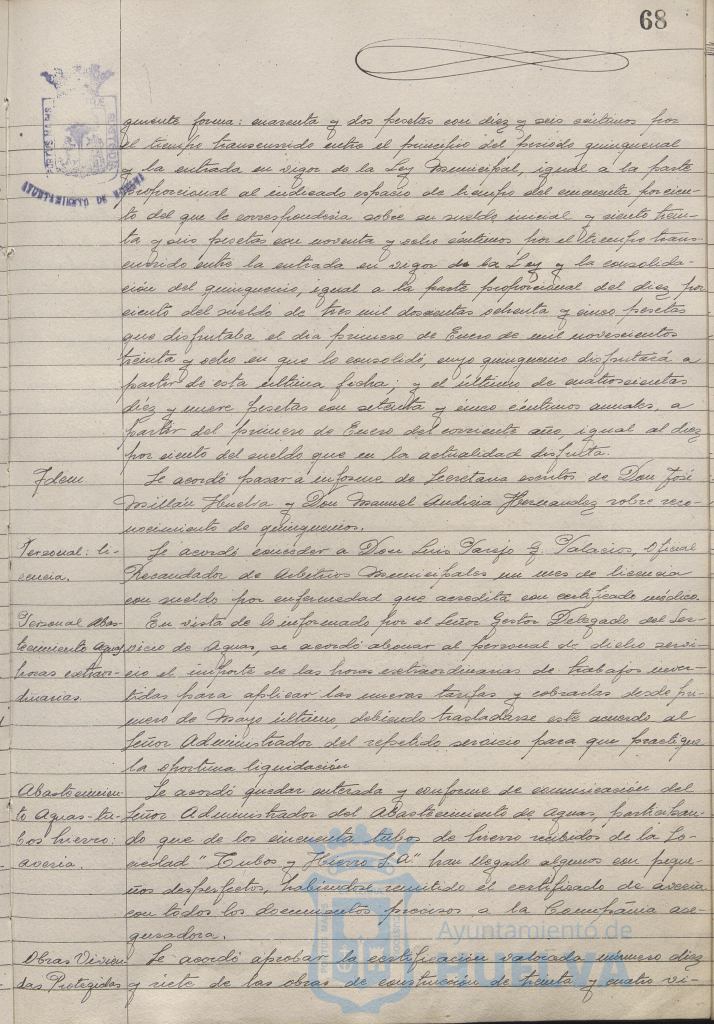 68
guiente forma: cuarenta y dos pesetas con diez y seis céntimos por
el tiempo transcurrido entre el principio del periodo quinquenal
y la entrada en vigor de la Ley Municipal, igual a la parte
proporcional al indicado espacio de tiempo del cincuenta por cien-
to del que le correspondería sobre su sueldo inicial y ciento trein-
ta y seis pesetas con noventa y ocho céntimos por el tiempo trans-
currido entre la entrada en vigor de la Ley y la consolida-
ción del quinquenio, igual a la parte proporcional del diez por
ciento del sueldo de tres mil doscientas ochenta y cinco pesetas
que disfrutaba el día primero de Enero de mil novecientos
treinta y ocho en que lo consolidó, cuyo quinquenio disfrutará a
partir de esta última fecha; y el último de cuatrocientas
diez y nueve pesetas con setenta y cinco céntimos anuales, a
partir del primero de Enero del corriente año, igual al diez
por ciento del sueldo que en la actualidad disfruta.
Idem. Se acordó pasar a informe de Secretaría escritos de Don José
Millán Huelva y Don Manuel Hernandez sobre reco-
nocimiento de quinquenios.
Personal: li- Se acordó conceder a Don Luis G. Palacios, Oficial
cencia. Recaudador de Arbitrios Municipales un mes de licencia
con sueldo por enfermedad que acredita con certificado médico.
Personal Abas- En vista de lo informado por el Señor Gestor Delegado del Ser-
tecimiento Aguas vicio de Aguas, se acordó abonar al personal de dicho servi-
horas extraor- cio el importe de las horas extraordinarias de trabajos inver-
dinarias. tidas para aplicar las nuevas tarifas y cobradas desde pri-
mero de Mayo último, debiendo trasladarse este acuerdo al
Señor Administrador del repetido servicio para que practique
la oportuna liquidación
Abastecimien- Se acordó quedar enterada y conforme de comunicación del
to Aguas-tu- Señor Administrador del Abastecimiento de Aguas, participan-
bos hierro: do que de los cincuenta tubos de hierro recibidos de la So-
avería. ciedad "Tubos y Hierro S.A" han llegado algunos con peque-
ños desperfectos, habiéndose remitido el certificado de avería
con todos los documentos precisos a la Compañia ase-
guradora.
Obras Vivien- Se acordó aprobar la certificación valorada número diez
das Protegidas y siete de las obras de construcción de treinta y cuatro vi-
AYUNTAMIENTO DE HUELVA
Ayuntamiento de
HUELVA